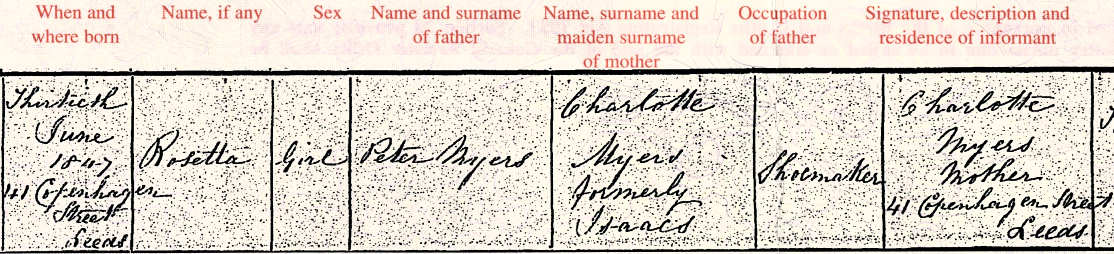 When and
where born
Name, if any
Sex
Name and surname
of father
Name, surname and
maiden surname
of mother
Occupation
of father
Signature, description and
residence of informant
Thirtieth
June
1847
41 Copenhagen
Street
Leeds
Rosetta
Girl
Peter Myers
Charlotte
Myers
formerly
Isaacs
Shoemaker
Charlotte
Myers
Mother
41 Copenhagen Street
Leeds